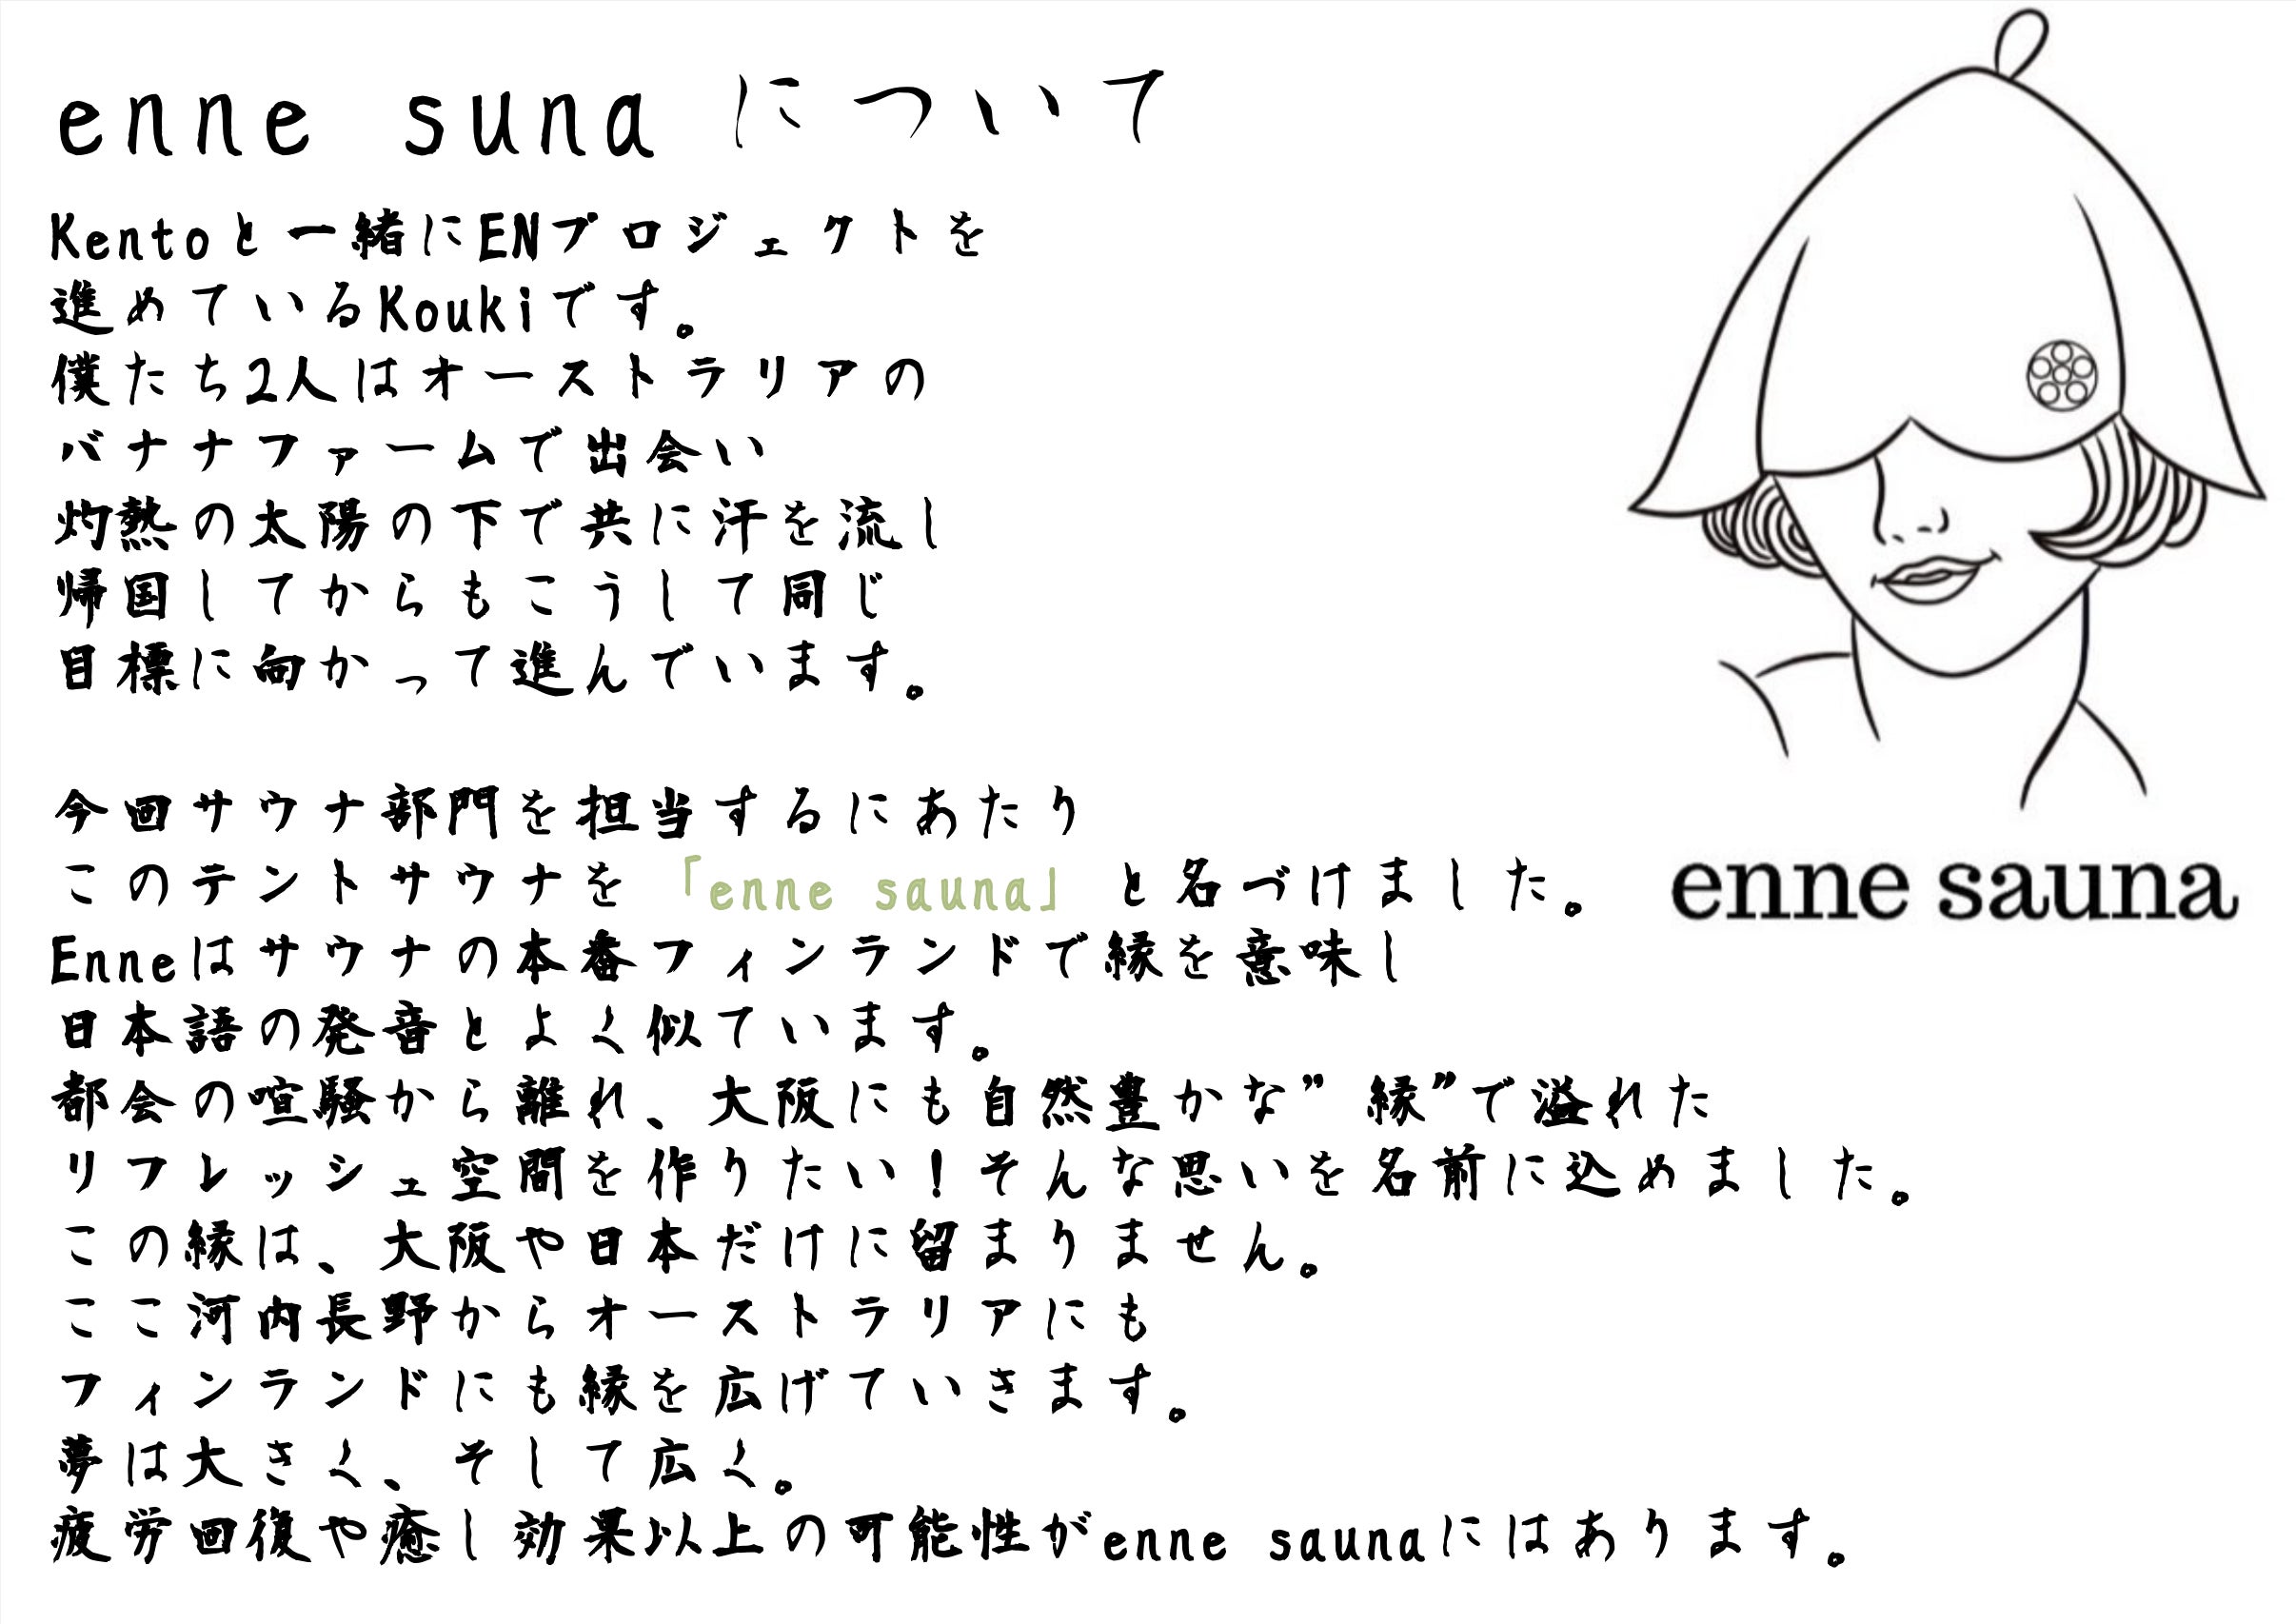 enne suna について
Kentoと一緒にENプロジェクトを
進めているKoukiです。
僕たち2人はオーストラリアの
バナナファームで出会い
灼熱の太陽の下で共に汗を流し
帰国してからもこうして同じ
目標に向かって進んでいます。
今回サウナ部門を担当するにあたり
このテントサウナを「enne sauna」と名づけました。
Enneはサウナの本番フィンランドで縁を意味し
日本語の発音とよく似ています。
都会の喧騒から離れ、大阪にも自然豊かな”縁”で溢れた
リフレッシュ空間を作りたい！そんな思いを名前に込めました。
この縁は、大阪や日本だけに留まりません。
ここ河内長野からオーストラリアにも
フィンランドにも縁を広げていきます。
夢は大きく、そして広く。
疲労回復や癒し効果以上の可能性がenne saunaにはあります。
enne sauna